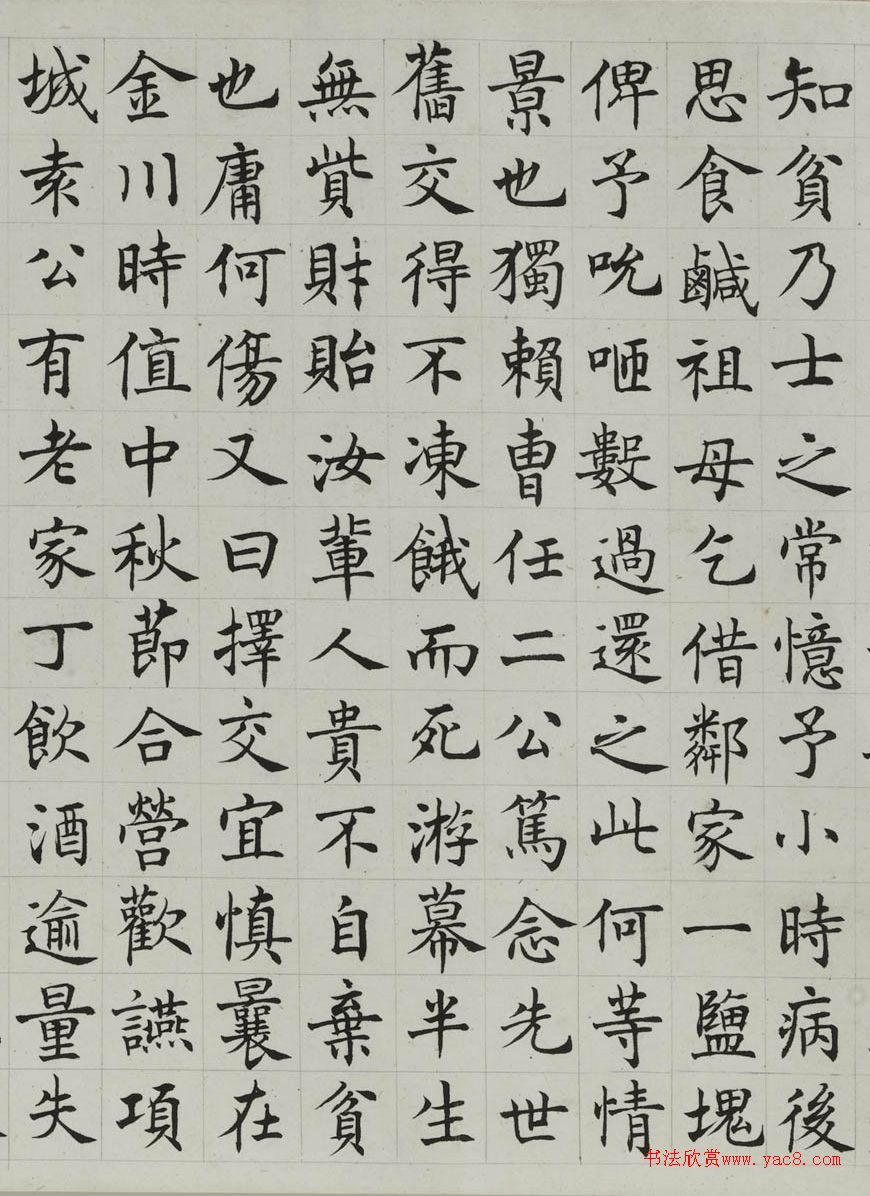 知貧乃士之常憶予小時病後
思食鹹祖母乞借鄰家一鹽塊
俾予吮咂數過還之此何等情
景也獨賴曹任二公篤念先世
舊交得不凍餓而死游幕半生
無貲財貽汝輩人貴不自棄貧
也庸何傷又曰擇交宜慎曩在
金川時值中秋節合營歡讌項
城袁公有老家丁飲酒逾量失
书法欣赏www.yac8.com